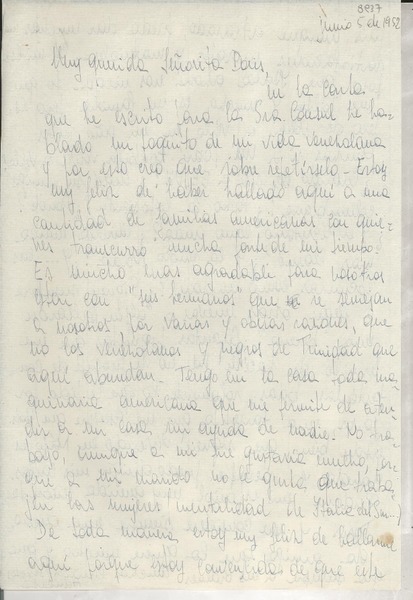 3937
junio 5 de 1952
Muy querida Señorita Dana,
en la carta
que he escrito para la Sra. Consul he ha-
blado un poquito de mi vida venezolana
y por esto creo que sobre repetírselo. Estoy
muy feliz de haber hallado aquí a una
cantidad de familias americanas con quie-
nes transcurro mucha parte de mi tiempo.
Es mucho mas agradable para nosotros
estar con "sus hermanos" que se semejan
a nosotros, por varias y obvias razones, que
no los venezolanos y negros de Trinidad que
aquí abundan. Tengo en la casa toda ma-
quinaria americana que mi permite de aten-
der a mi casa sin ayuda de nadie. No tra-
bajo, aunque a mi me gustaria mucho, por-
qué a mi marido no le gusta que traba-
jen las mujeres (mentalidad de Italia del Sur...)
De toda manera, estoy muy feliz de hallarme
aquí porque estoy convencida de que este